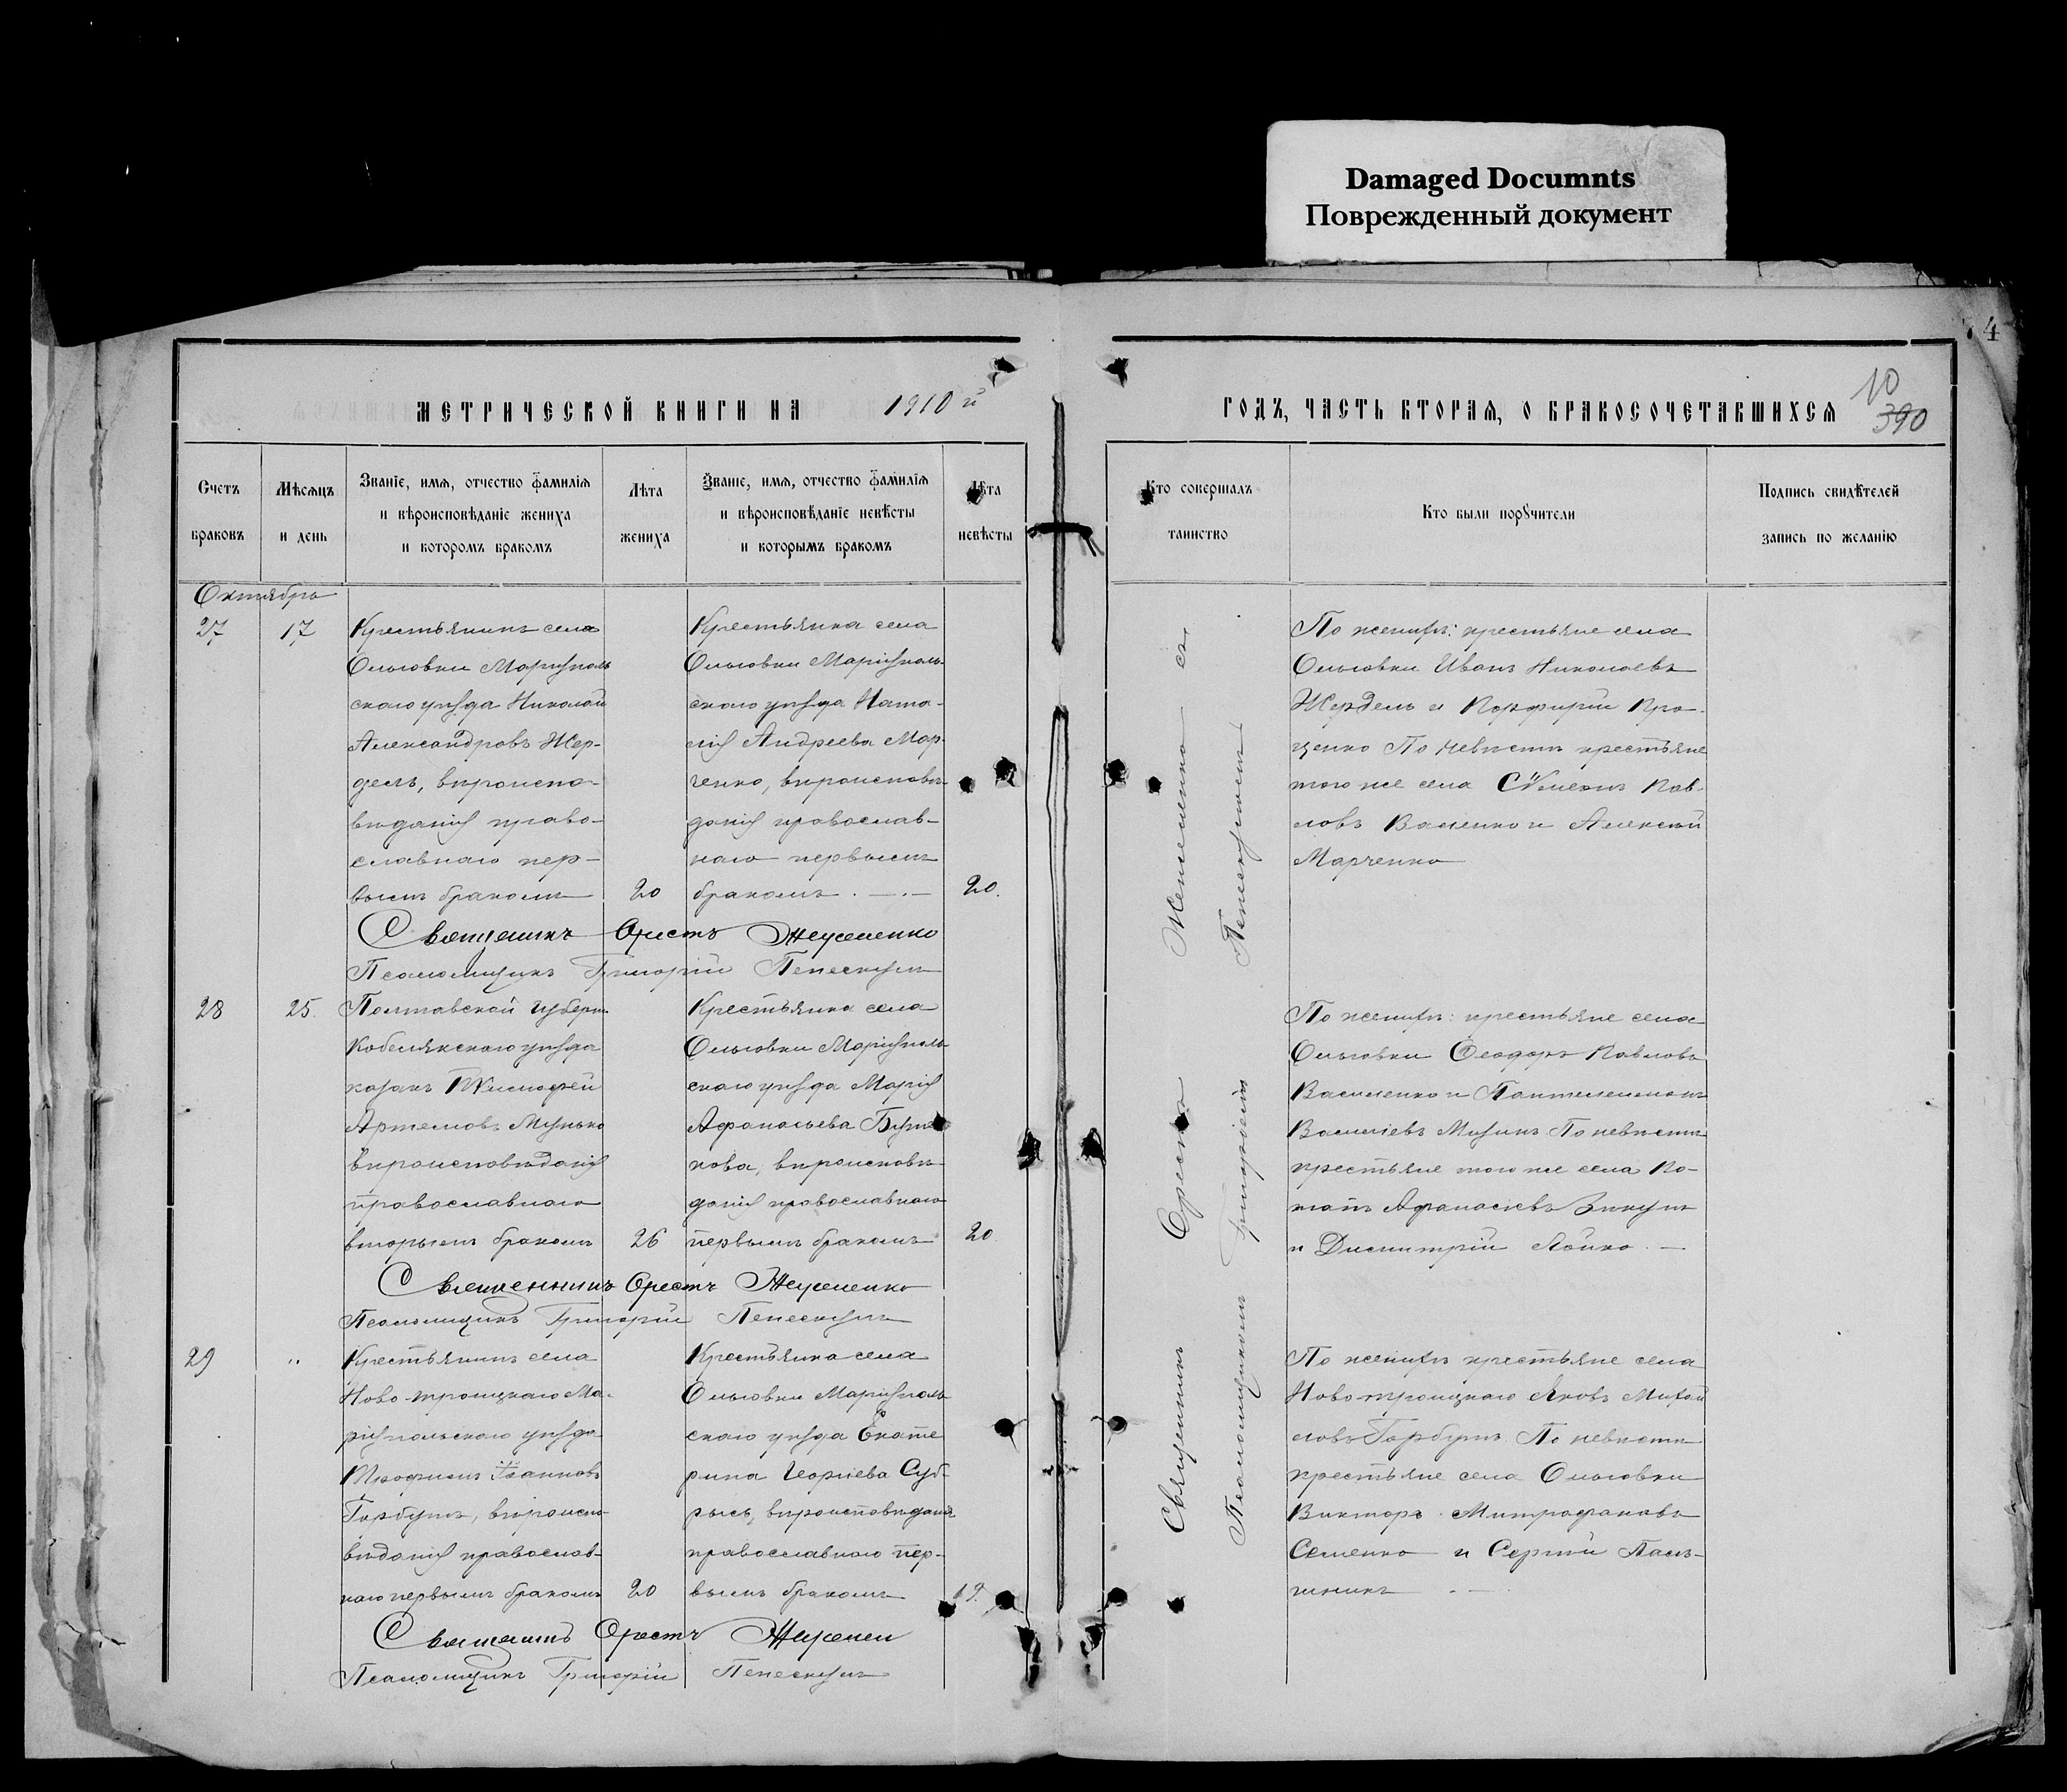 Damaged Documnts
Поврежденный документ
4
МЕТРИЧЕСКОЙ КНИГИ НА 1910 й
ГОДЪ, ЧАСТЬ ВТОРАЯ, О БРАКОСОЧЕТАВШИХСЯ
10
390
Счетъ
браковъ
Мѣсяцъ
и день
Званіе, имя, отчество фамилія
и вѣроисповѣданіе жениха
и которомъ бракомъ
Лѣта
жениха
Званіе, имя, отчество фамилія
и вѣроисповѣданіе невѣсты
и которымъ бракомъ
Лѣта
невѣсты
Кто совершалъ
таинство
Кто были поручители
Подпись свидѣтелей
запись по желанію
Октября
27
17
Крестьянинъ села
Ольговки Маріуполь
скаго уѣзда Николай
Александровъ Жер-
дель, вѣроиспо-
вѣданія право-
славнаго пер-
вымъ бракомъ
20
Крестьянка села
Ольговки Маріуполь
скаго уѣзда Ната-
лія Андреева Мар-
ченко, вѣроисповѣ-
данія православ-
наго первымъ
бракомъ
20.
Священникъ Орестъ
Псаломщикъ Григорій
По женихѣ: крестьяне села
Ольговки Иванъ Николаевъ
Жердель и Порфирій Про-
ценко По невѣстѣ крестьяне
того же села Симеонъ Пав-
ловъ Василенко и Алексѣй
Марченко
28
25.
Полтавской губерн.
Кобелякскаго уѣзда
казакъ Тимофей
Артемовъ Мунько
вѣроисповѣданія
православнаго
вторымъ бракомъ
26
Крестьянка села
Ольговки Маріуполь
скаго уѣзда Марія
Афанасьева
вѣроисповѣ-
данія православнаго
первымъ бракомъ
20.
Священникъ Орестъ
Псаломщикъ Григорій
По женихѣ: крестьяне села
Ольговки Ѳеодоръ Павловъ
Василенко и Пантелеимонъ
Василіевъ По невѣстѣ
крестьяне того же села По-
тапъ Афанасіевъ
и Димитрій Лойко. —
29
"
Крестьянинъ села
Ново-троицкаго Ма-
ріупольскаго уѣзда
Трофимъ Іоанновъ
Горбунъ, вѣроиспо-
вѣданія православ-
наго первымъ бракомъ
20
Крестьянка села
Ольговки Маріуполь
скаго уѣзда Екате
рина Георгіева
вѣроисповѣданія
православнаго пер-
вымъ бракомъ
19.
Священникъ Орестъ
Псаломщикъ Григорій
По женихѣ крестьяне села
Ново-троицкаго Яковъ Михай
ловъ Горбунъ. По невѣстѣ
крестьяне села Ольговки
Викторъ Митрофановъ
Семенко и Сергѣй
Священникъ Орестъ
Псаломщикомъ Григоріемъ